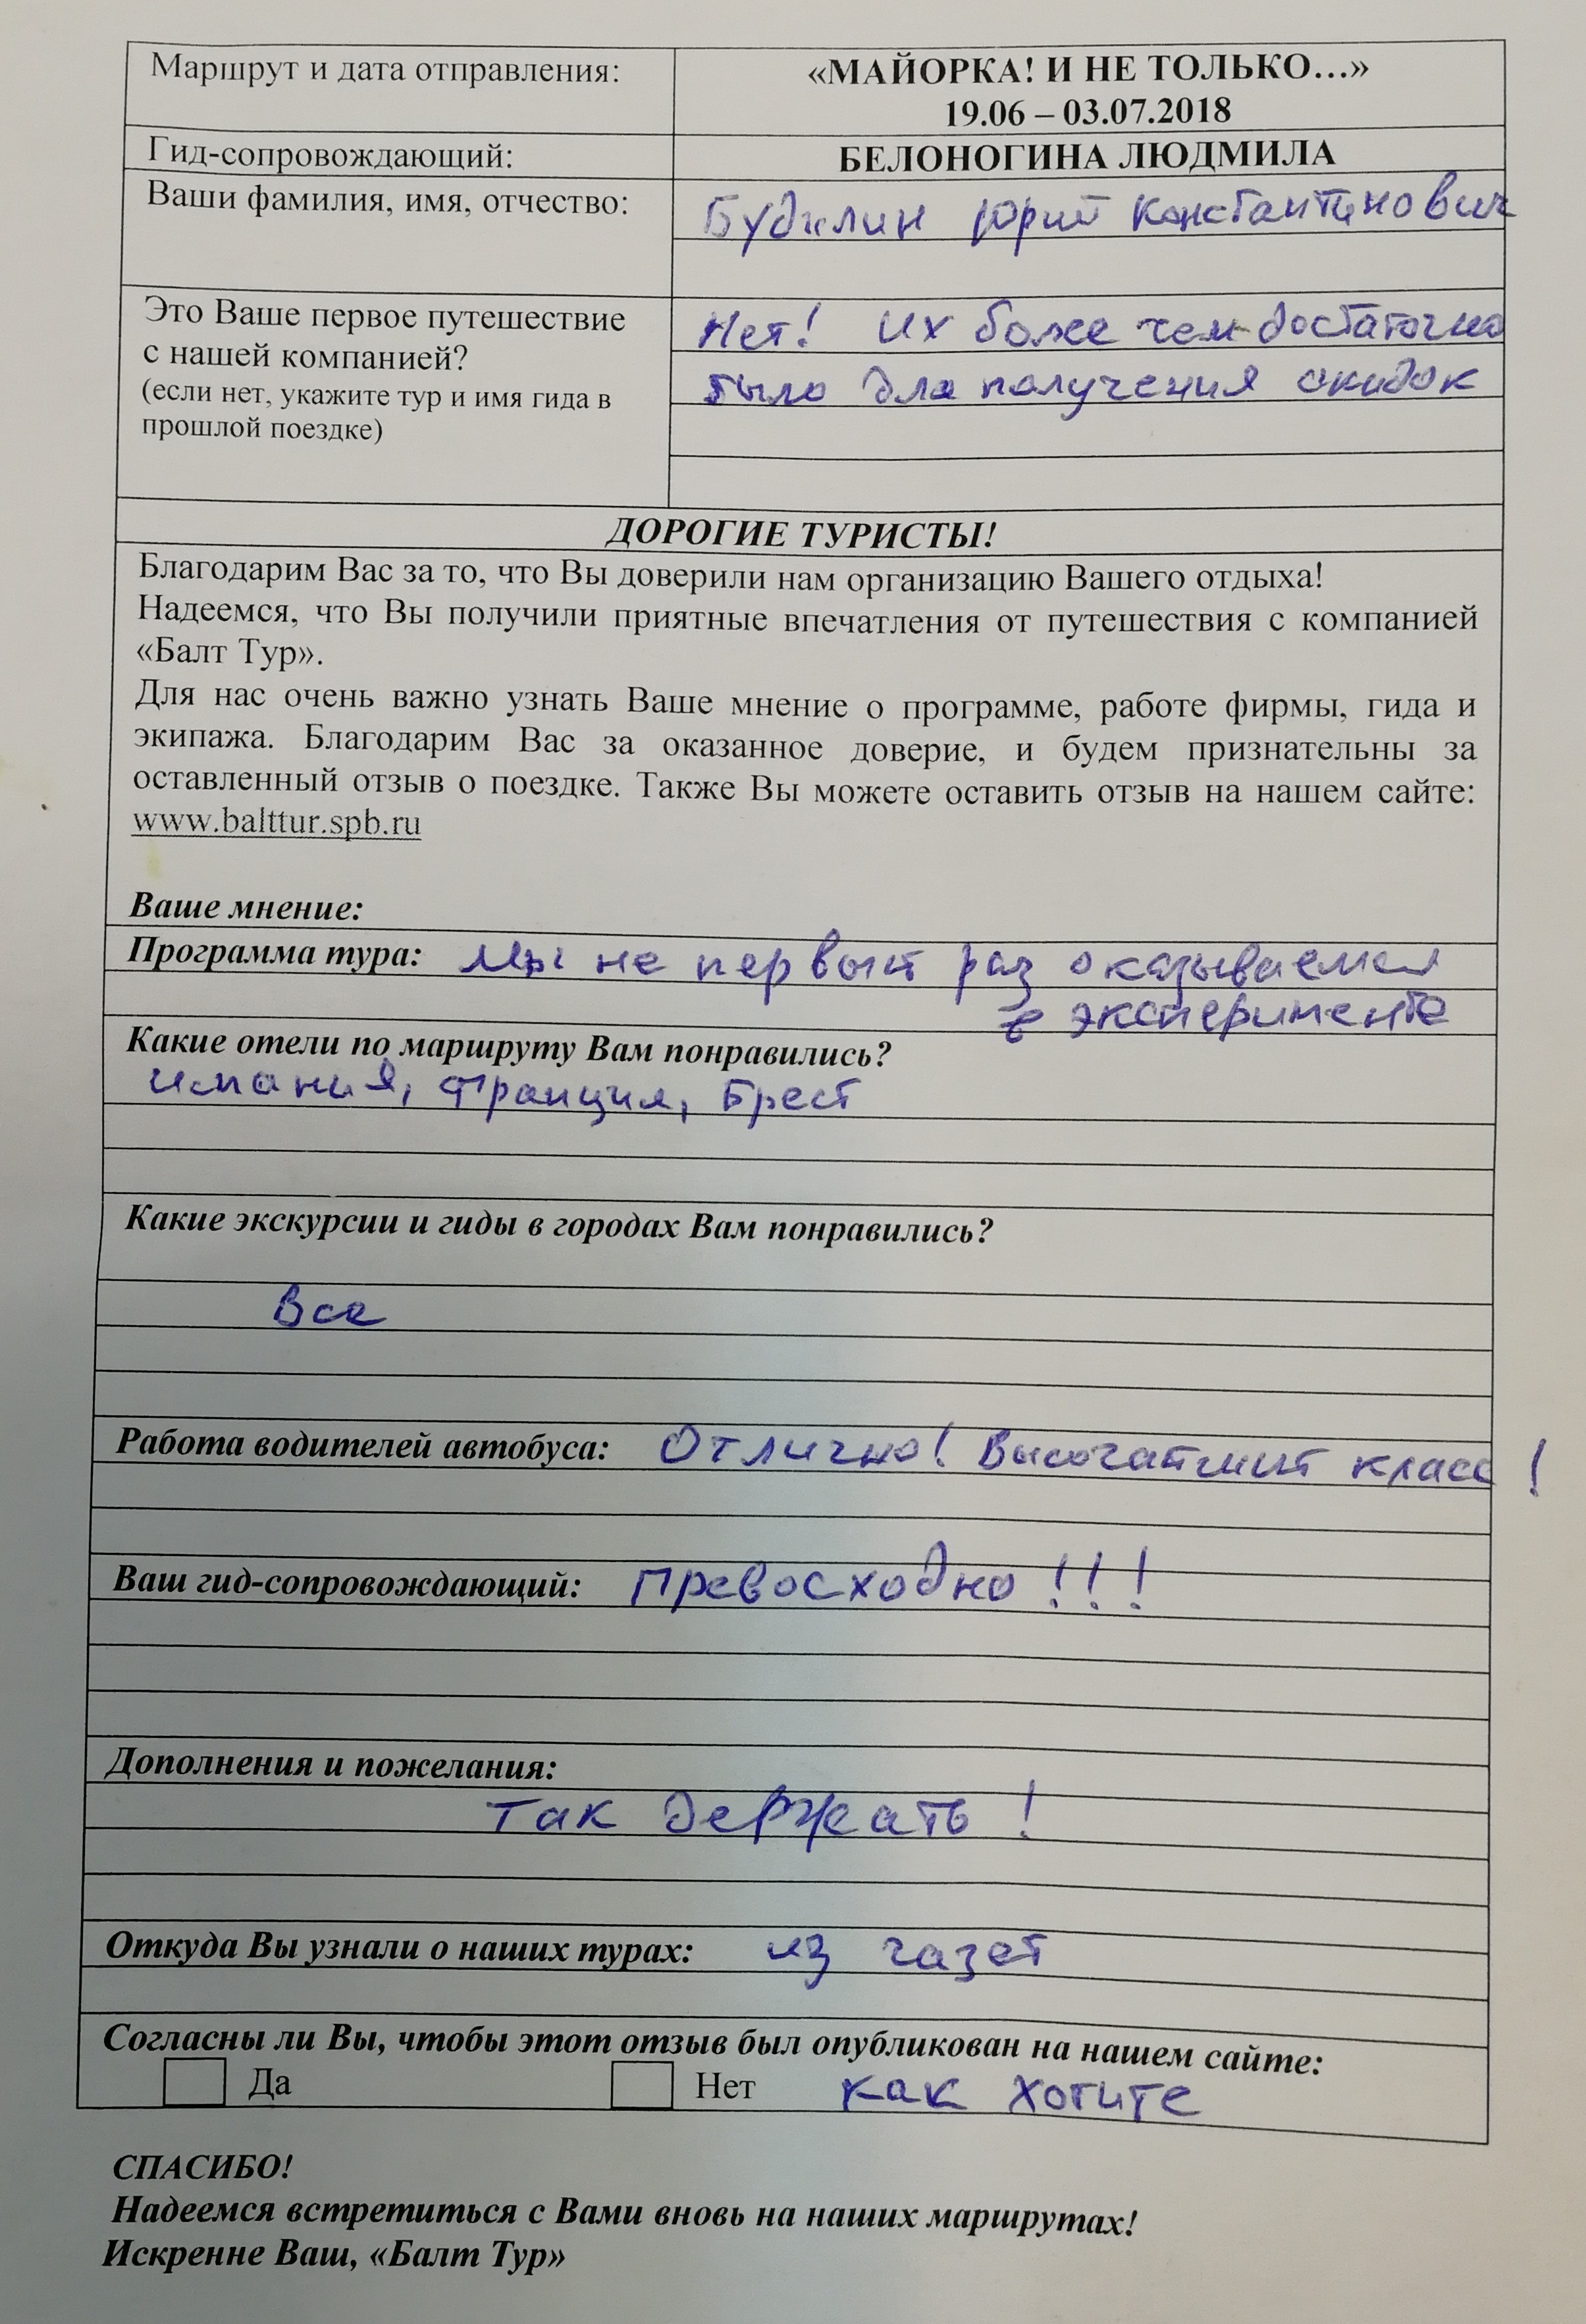 Маршрут и дата отправления:
«МАЙОРКА! И НЕ ТОЛЬКО...»
19.06 – 03.07.2018
Гид-сопровождающий:
БЕЛОНОГИНА ЛЮДМИЛА
Ваши фамилия, имя, отчество:
Будилин Юрий Константинович
Это Ваше первое путешествие
с нашей компанией?
(если нет, укажите тур и имя гида в
прошлой поездке)
Нет! Их более чем достаточно
было для получения скидок
ДОРОГИЕ ТУРИСТЫ!
Благодарим Вас за то, что Вы доверили нам организацию Вашего отдыха!
Надеемся, что Вы получили приятные впечатления от путешествия с компанией
«Балт Тур».
Для нас очень важно узнать Ваше мнение о программе, работе фирмы, гида и
экипажа. Благодарим Вас за оказанное доверие, и будем признательны за
оставленный отзыв о поездке. Также Вы можете оставить отзыв на нашем сайте:
www.balttur.spb.ru
Ваше мнение:
Программа тура: Мы не первый раз оказываемся
в эксперименте
Какие отели по маршруту Вам понравились?
Испания, Франция, Брест
Какие экскурсии и гиды в городах Вам понравились?
Все
Работа водителей автобуса: Отлично! Высочайший класс!
Ваш гид-сопровождающий: Превосходно!!!
Дополнения и пожелания:
Так держать!
Откуда Вы узнали о наших турах: из газет
Согласны ли Вы, чтобы этот отзыв был опубликован на нашем сайте:
Да Нет как хотите
СПАСИБО!
Надеемся встретиться с Вами вновь на наших маршрутах!
Искренне Ваш, «Балт Тур»